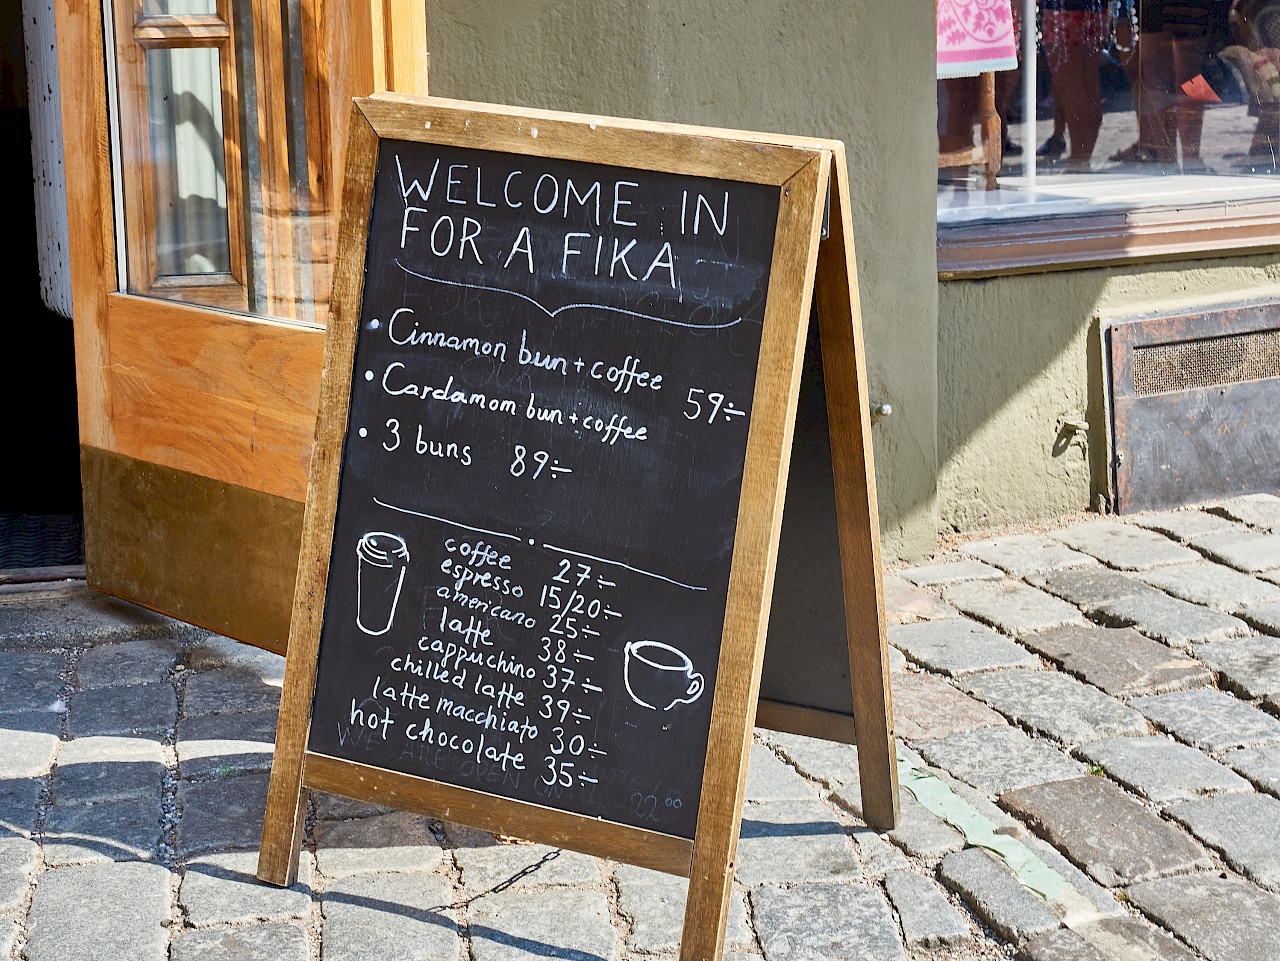 WELCOME IN
FOR A FIKA
• Cinnamon bun + coffee 59÷
• Cardamom bun + coffee
• 3 buns 89÷
coffee 27÷
espresso 15/20÷
americano 25÷
latte 38÷
cappuchino 37÷
chilled latte 39÷
latte macchiato 30÷
hot chocolate 35÷
WE ARE OPEN
22⁰⁰